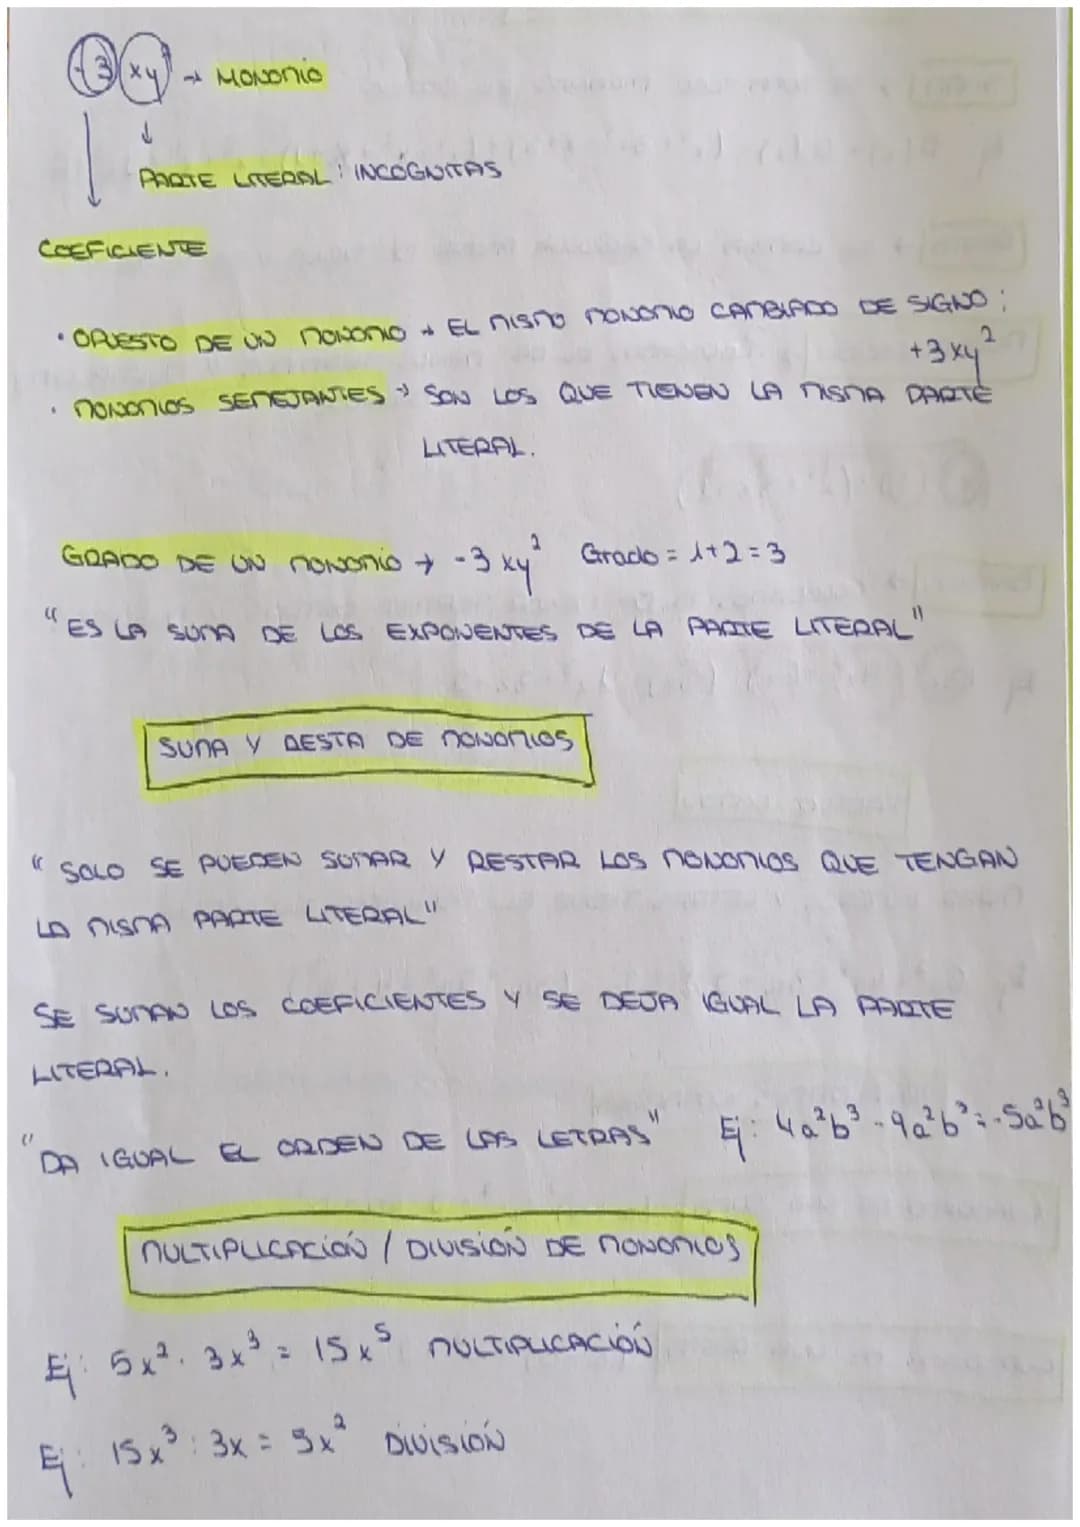 -3 xy² → MONOMIO
PARTE LITERAL: INCÓGNITAS
COEFICIENTE
· OPUESTO DE UN MONOMIO → EL MISMO MONOMIO CAMBIADO DE SIGNO:
+3xy²
· MONOMIOS SEMEJANTES → SON LOS QUE TIENEN LA MISMA PARTE
LITERAL.
GRADO DE UN MONOMIO → -3xy² Grado = 1+2=3
"ES LA SUMA DE LOS EXPONENTES DE LA PARTE LITERAL"
SUMA Y RESTA DE MONOMIOS
"SOLO SE PUEDEN SUMAR Y RESTAR LOS MONOMIOS QUE TENGAN
LA MISMA PARTE LITERAL"
SE SUMAN LOS COEFICIENTES Y SE DEJA IGUAL LA PARTE
LITERAL.
"DA IGUAL EL ORDEN DE LAS LETRAS" Ej: 4a²b³ - 9a²b³ = -5a²b³
MULTIPLICACIÓN / DIVISIÓN DE MONOMIOS
Ej: 5x² · 3x³ = 15x⁵ MULTIPLICACIÓN
Ej: 15x³ : 3x = 5x² DIVISIÓN